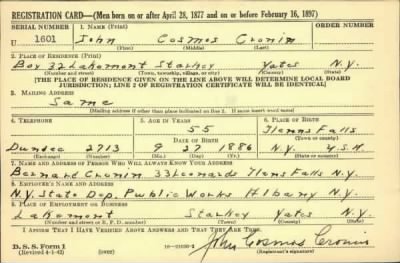 REGISTRATION CARD—(Men born on or after April 28, 1877 and on or before February 16, 1897)
SERIAL NUMBER 1. NAME (Print)
U 1601 John Cosmos Cronin
(First) (Middle) (Last)
2. PLACE OF RESIDENCE (Print)
Box 32 Lakemont Starkey Yates N.Y.
(Number and street) (Town, township, village, or city) (County) (State)
[THE PLACE OF RESIDENCE GIVEN ON THE LINE ABOVE WILL DETERMINE LOCAL BOARD
JURISDICTION; LINE 2 OF REGISTRATION CERTIFICATE WILL BE IDENTICAL]
3. MAILING ADDRESS
Same
[Mailing address if other than place indicated on line 2. If same insert word same]
4. TELEPHONE 5. AGE IN YEARS 6. PLACE OF BIRTH
55 Glenns Falls
DATE OF BIRTH (Town or county)
Dundee 2713 9 27 1886 N.Y. U.S.A.
(Exchange) (Number) (Mo.) (Day) (Yr.) (State or country)
7. NAME AND ADDRESS OF PERSON WHO WILL ALWAYS KNOW YOUR ADDRESS
Bernard Cronin 33 Leonards Glens Falls N.Y.
8. EMPLOYER'S NAME AND ADDRESS
N.Y. State Dep. Public Works Albany N.Y.
9. PLACE OF EMPLOYMENT OR BUSINESS
Lakemont Starkey Yates N.Y.
(Number and street or R. F. D. number) (Town) (County) (State)
I AFFIRM THAT I HAVE VERIFIED ABOVE ANSWERS AND THAT THEY ARE TRUE.
D. S. S. Form 1
(Revised 4-1-42) (over) John Cosmos Cronin